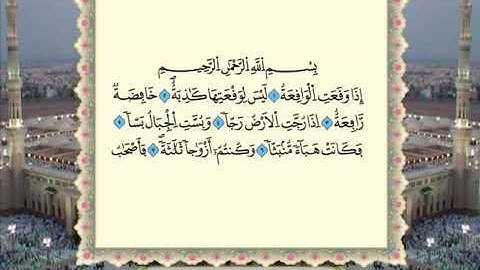 بِسْمِ اللَّهِ الرَّحْمَٰنِ الرَّحِيمِ
إِذَا وَقَعَتِ الْوَاقِعَةُ ۝١ لَيْسَ لِوَقْعَتِهَا كَاذِبَةٌ ۝٢ خَافِضَةٌ
رَّافِعَةٌ ۝٣ إِذَا رُجَّتِ الْأَرْضُ رَجًّا ۝٤ وَبُسَّتِ الْجِبَالُ بَسًّا ۝٥
فَكَانَتْ هَبَاءً مُّنْبَثًّا ۝٦ وَكُنْتُمْ أَزْوَاجًا ثَلَاثَةً ۝٧ فَأَصْحَابُ